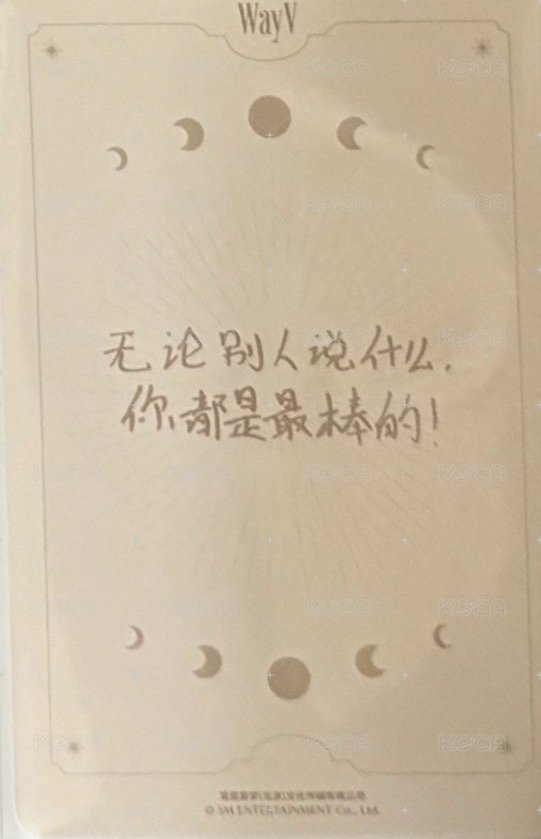 WayV
无论别人说什么.
你都是最棒的!
© SM ENTERTAINMENT Co., Ltd.